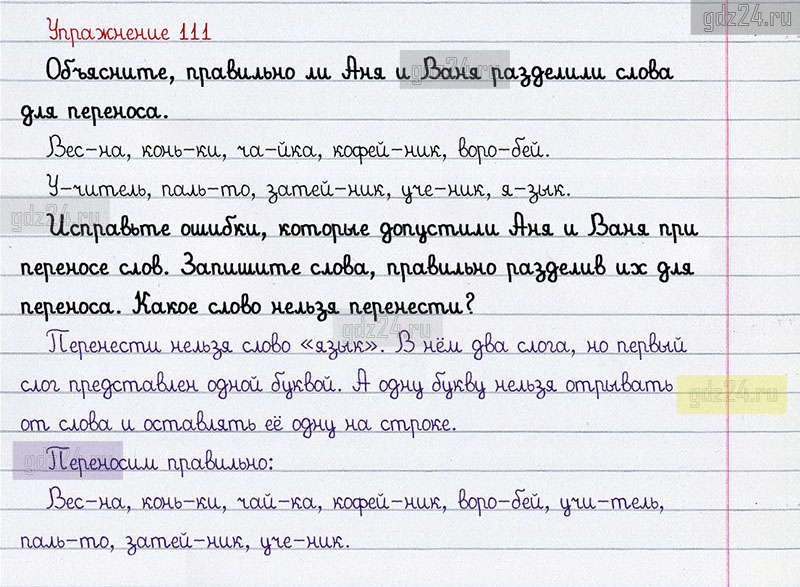 gdz24.ru
Упражнение 111
Объясните, правильно ли Аня и Ваня разделили слова
gdz24.ru
для переноса.
Вес-на, конь-ки, ча-йка, кофей-ник, воро-бей.
У-читель, паль-то, затей-ник, уче-ник, я-зык.
gdz24.ru
Исправьте ошибки, которые допустили Аня и Ваня при
переносе слов. Запишите слова, правильно разделив их для
переноса. Какое слово нельзя перенести?
gdz24.ru
Перенести нельзя слово «язык». В нём два слога, но первый
слог представлен одной буквой. А одну букву нельзя отрывать
gdz24.ru
от слова и оставлять её одну на строке.
Переносим правильно:
gdz24.ru
Вес-на, конь-ки, чай-ка, кофей-ник, воро-бей, учи-тель,
паль-то, затей-ник, уче-ник.